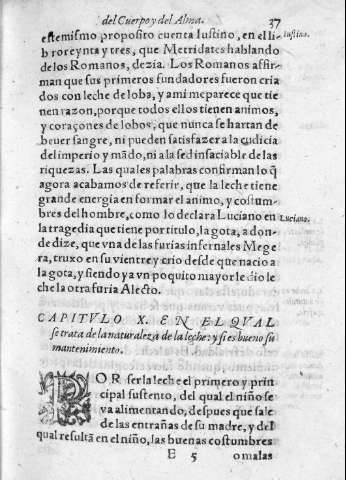 del Cuerpo y del Alma. 37
este mismo proposito cuenta Iustino, en el li- Iustino.
bro reynta y tres, que Metridates hablando
de los Romanos, dezia. Los Romanos affir-
man que sus primeros fundadores fueron cria
dos con leche de loba, y a mi me parece que tie
nen razon, porque todos ellos tienen animos,
y coraçones de lobos, que nunca se hartan de
beuer sangre, ni pueden satisfazer a la cudicia
del imperio y mãdo, ni a la sed insaciable de las
riquezas. Las quales palabras confirman lo q̃
agora acabamos de referir, que la leche tiene
grande energia en formar el animo, y costum-
bres del hombre, como lo declara Luciano en Luciano.
la tragedia que tiene por titulo, la gota, a don-
de dize, que vna de las furias infernales Mege
ra, truxo en su vientre y crio desde que nacio a
la gota, y siendo ya vn poquito mayor le dio le
che la otra furia Alecto.
CAPITVLO X. EN EL QVAL
se trata de la naturaleza de la leche: y si es bueno su
mantenimiento.
POR ser la leche el primero y prin
cipal sustento, del qual el niño se
va alimentando, despues que sale
de las entrañas de su madre, y del
qual resultã en el niño, las buenas costumbres
E 5 o malas